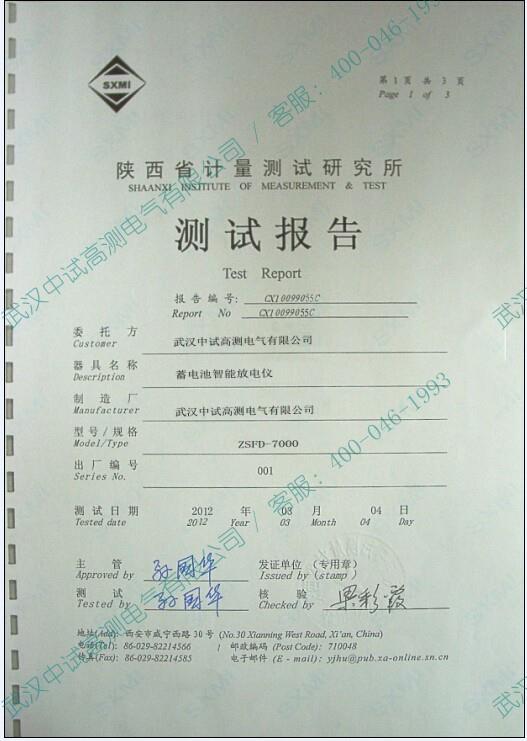 SXMI
第 1 页 共 3 页
Page 1 of 3
陕西省计量测试研究所
SHAANXI INSTITUTE OF MEASUREMENT & TEST
测试报告
Test Report
报告编号: CX10099055C
Report No CX10099055C
委托方 武汉中试高测电气有限公司
Customer
器具名称 蓄电池智能放电仪
Description
制造厂 武汉中试高测电气有限公司
Manufacturer
型号/规格 ZSFD-7000
Model/Type
出厂编号 001
Series No.
测试日期 2012 年 03 月 04 日
Tested date 2012 Year 03 Month 04 Day
主管 孙国华 发证单位（专用章）
Approved by Issued by (stamp)
测试 孙国华 核验
Tested by Checked by
地址(Add): 西安市咸宁西路 30 号 (No.30 Xianning West Road, Xi'an, China)
电话(Tel): 86-029-82214566 / 邮政编码 (Post Code): 710048
传真(Fax): 86-029-82214585 电子邮件 (E - mail): yjhu@pub.xa-online.sn.cn
武汉中试高测电气有限公司 / 客服：400-046-1993
武汉中试高测电气有限公司 / 客服：400-046-1993